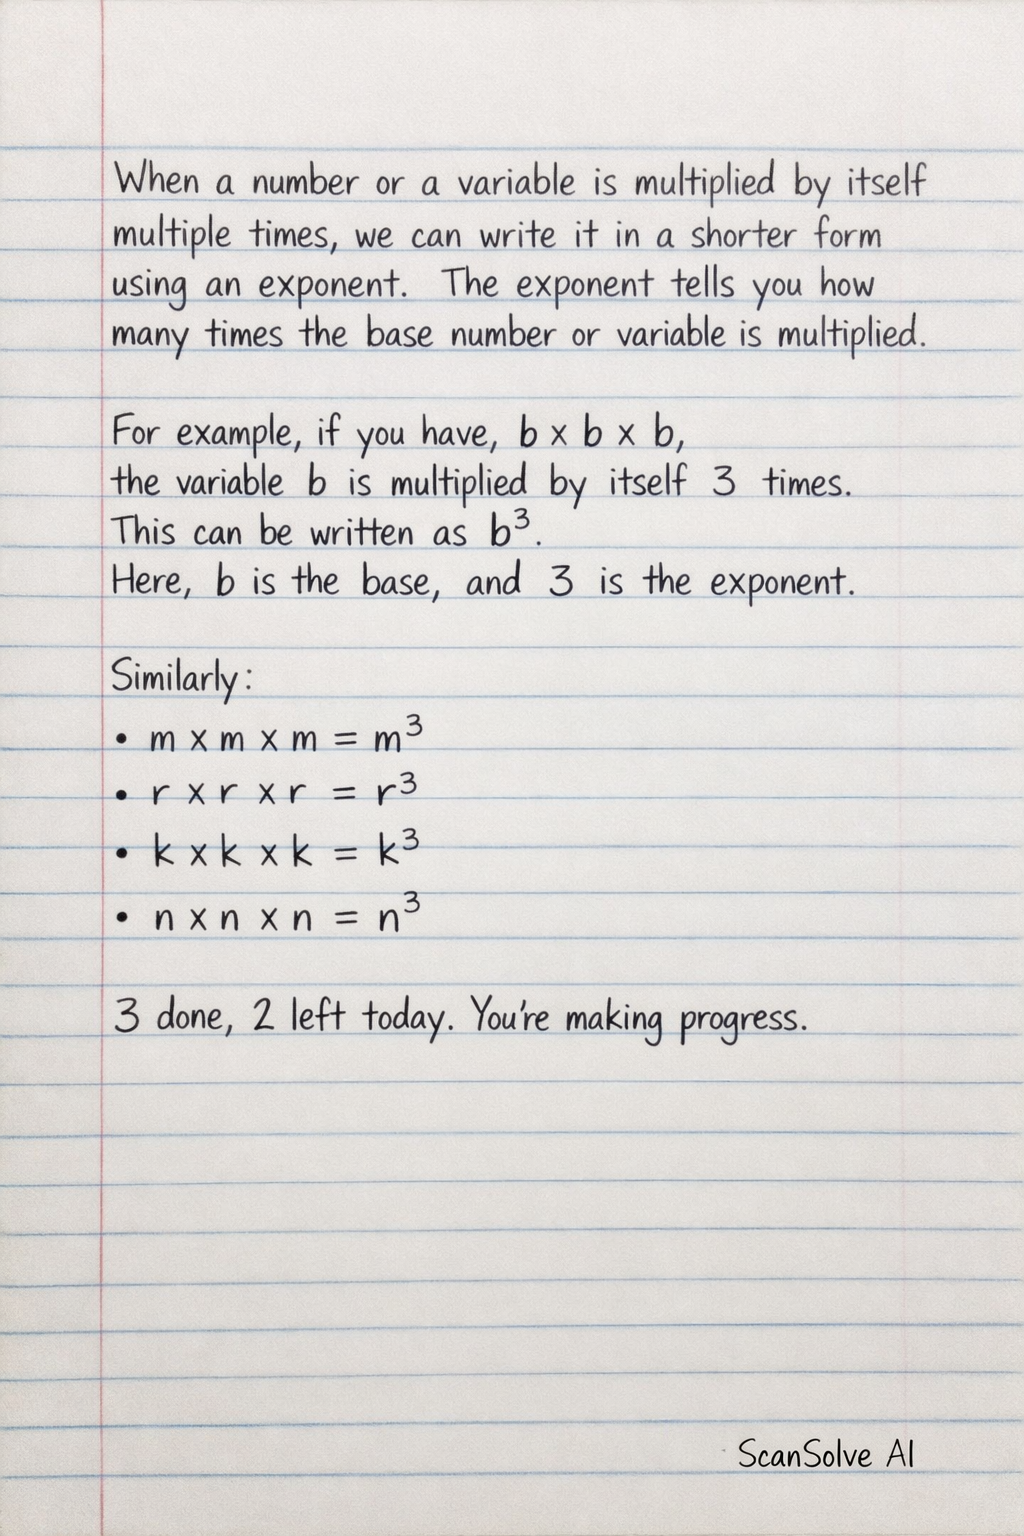 When a number or a variable is multiplied by itself
multiple times, we can write it in a shorter form
using an exponent. The exponent tells you how
many times the base number or variable is multiplied.
For example, if you have, b x b x b,
the variable b is multiplied by itself 3 times.
This can be written as b³.
Here, b is the base, and 3 is the exponent.
Similarly:
• m x m x m = m³
• r x r x r = r³
• k x k x k = k³
• n x n x n = n³
3 done, 2 left today. You're making progress.
ScanSolve AI